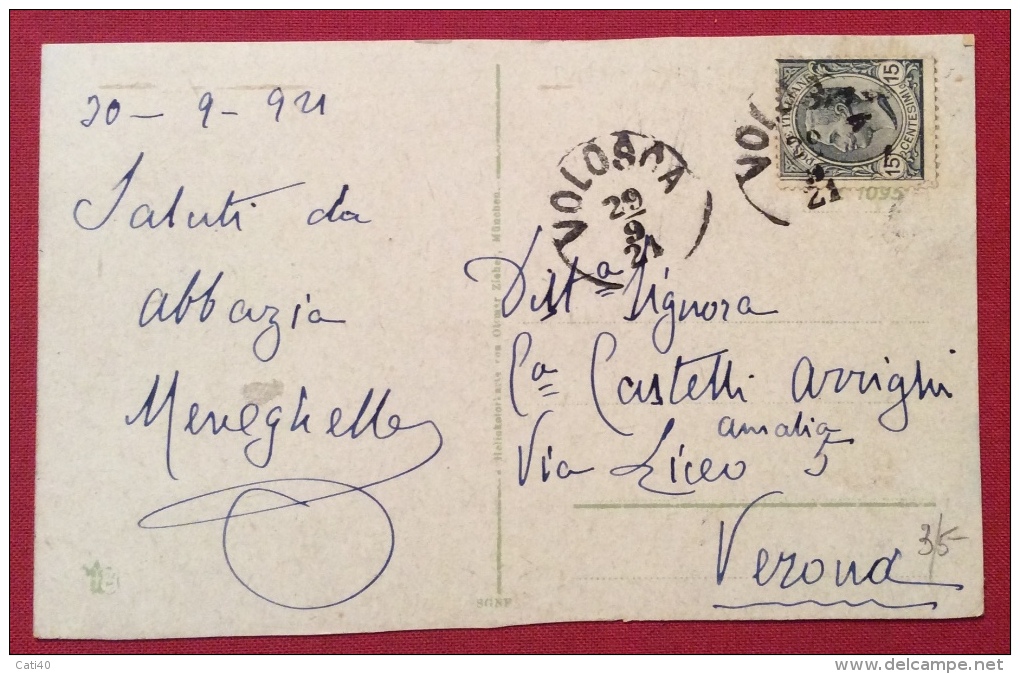 20 - 9 - 921
Saluti da
Abbazia
Meneghello
VOLOSCA
29
9
21
VOLO
9
21
15
15
CENTESIMI
1095
Dist.a Signora
Ca Castelli Arrighi
Amalia
Via Liceo 5
Verona
35-
Heliokolorkarte von Ottmar Zieher, München.
Cati40
www.delcampe.net